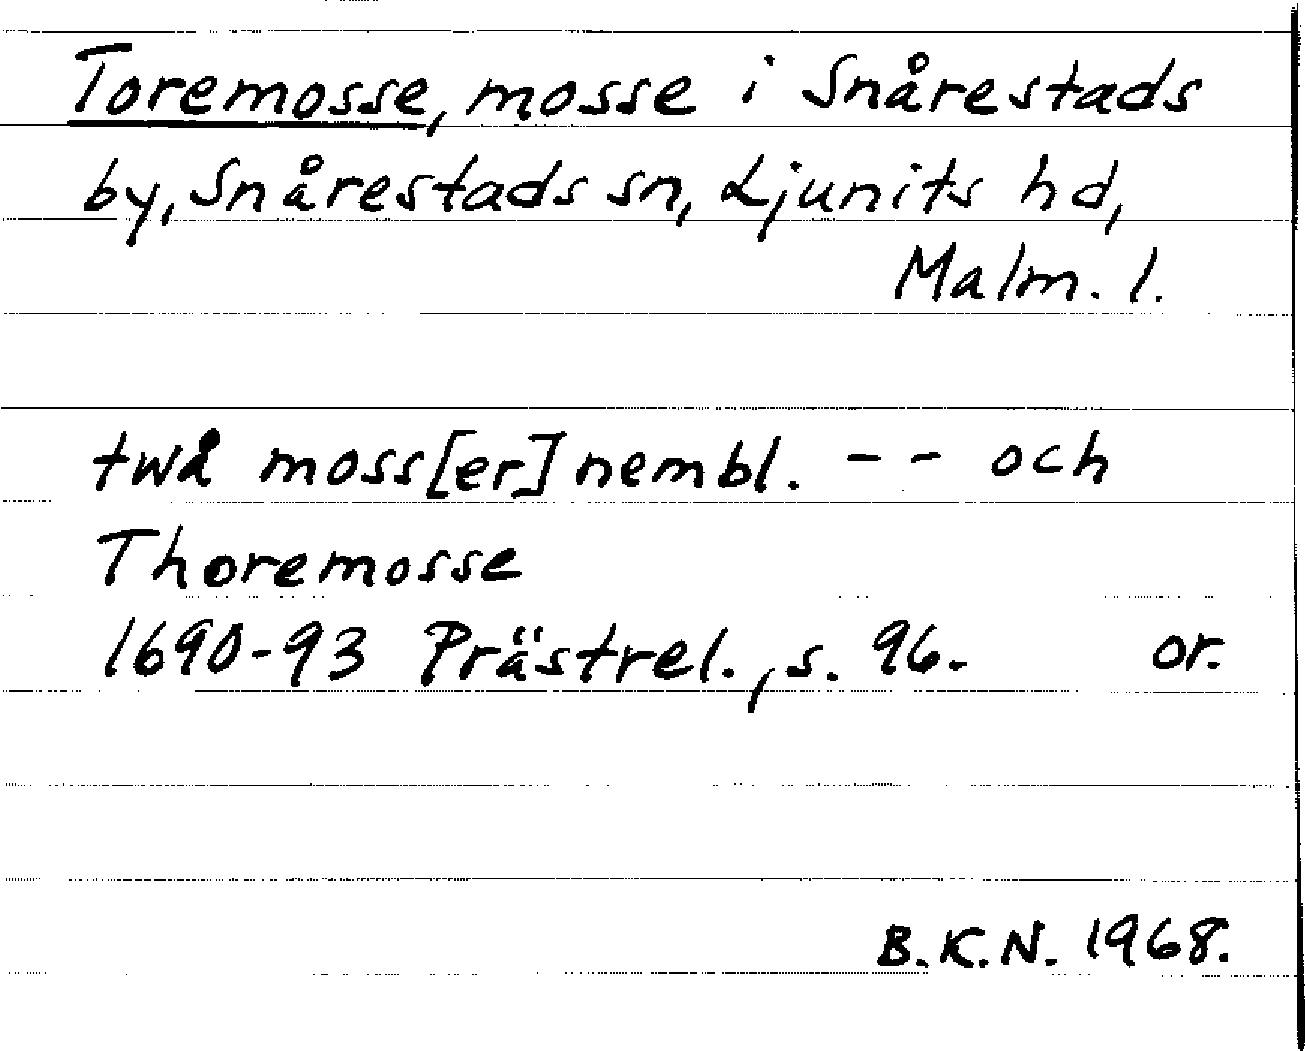 Toremosse, mosse i Snårestads
by, Snårestads sn, Ljunits hd,
Malm. l.
twå moss[er] nembl. - - och
Thoremosse
1690-93 Prästrel., s. 96. or.
B.K.N. 1968.